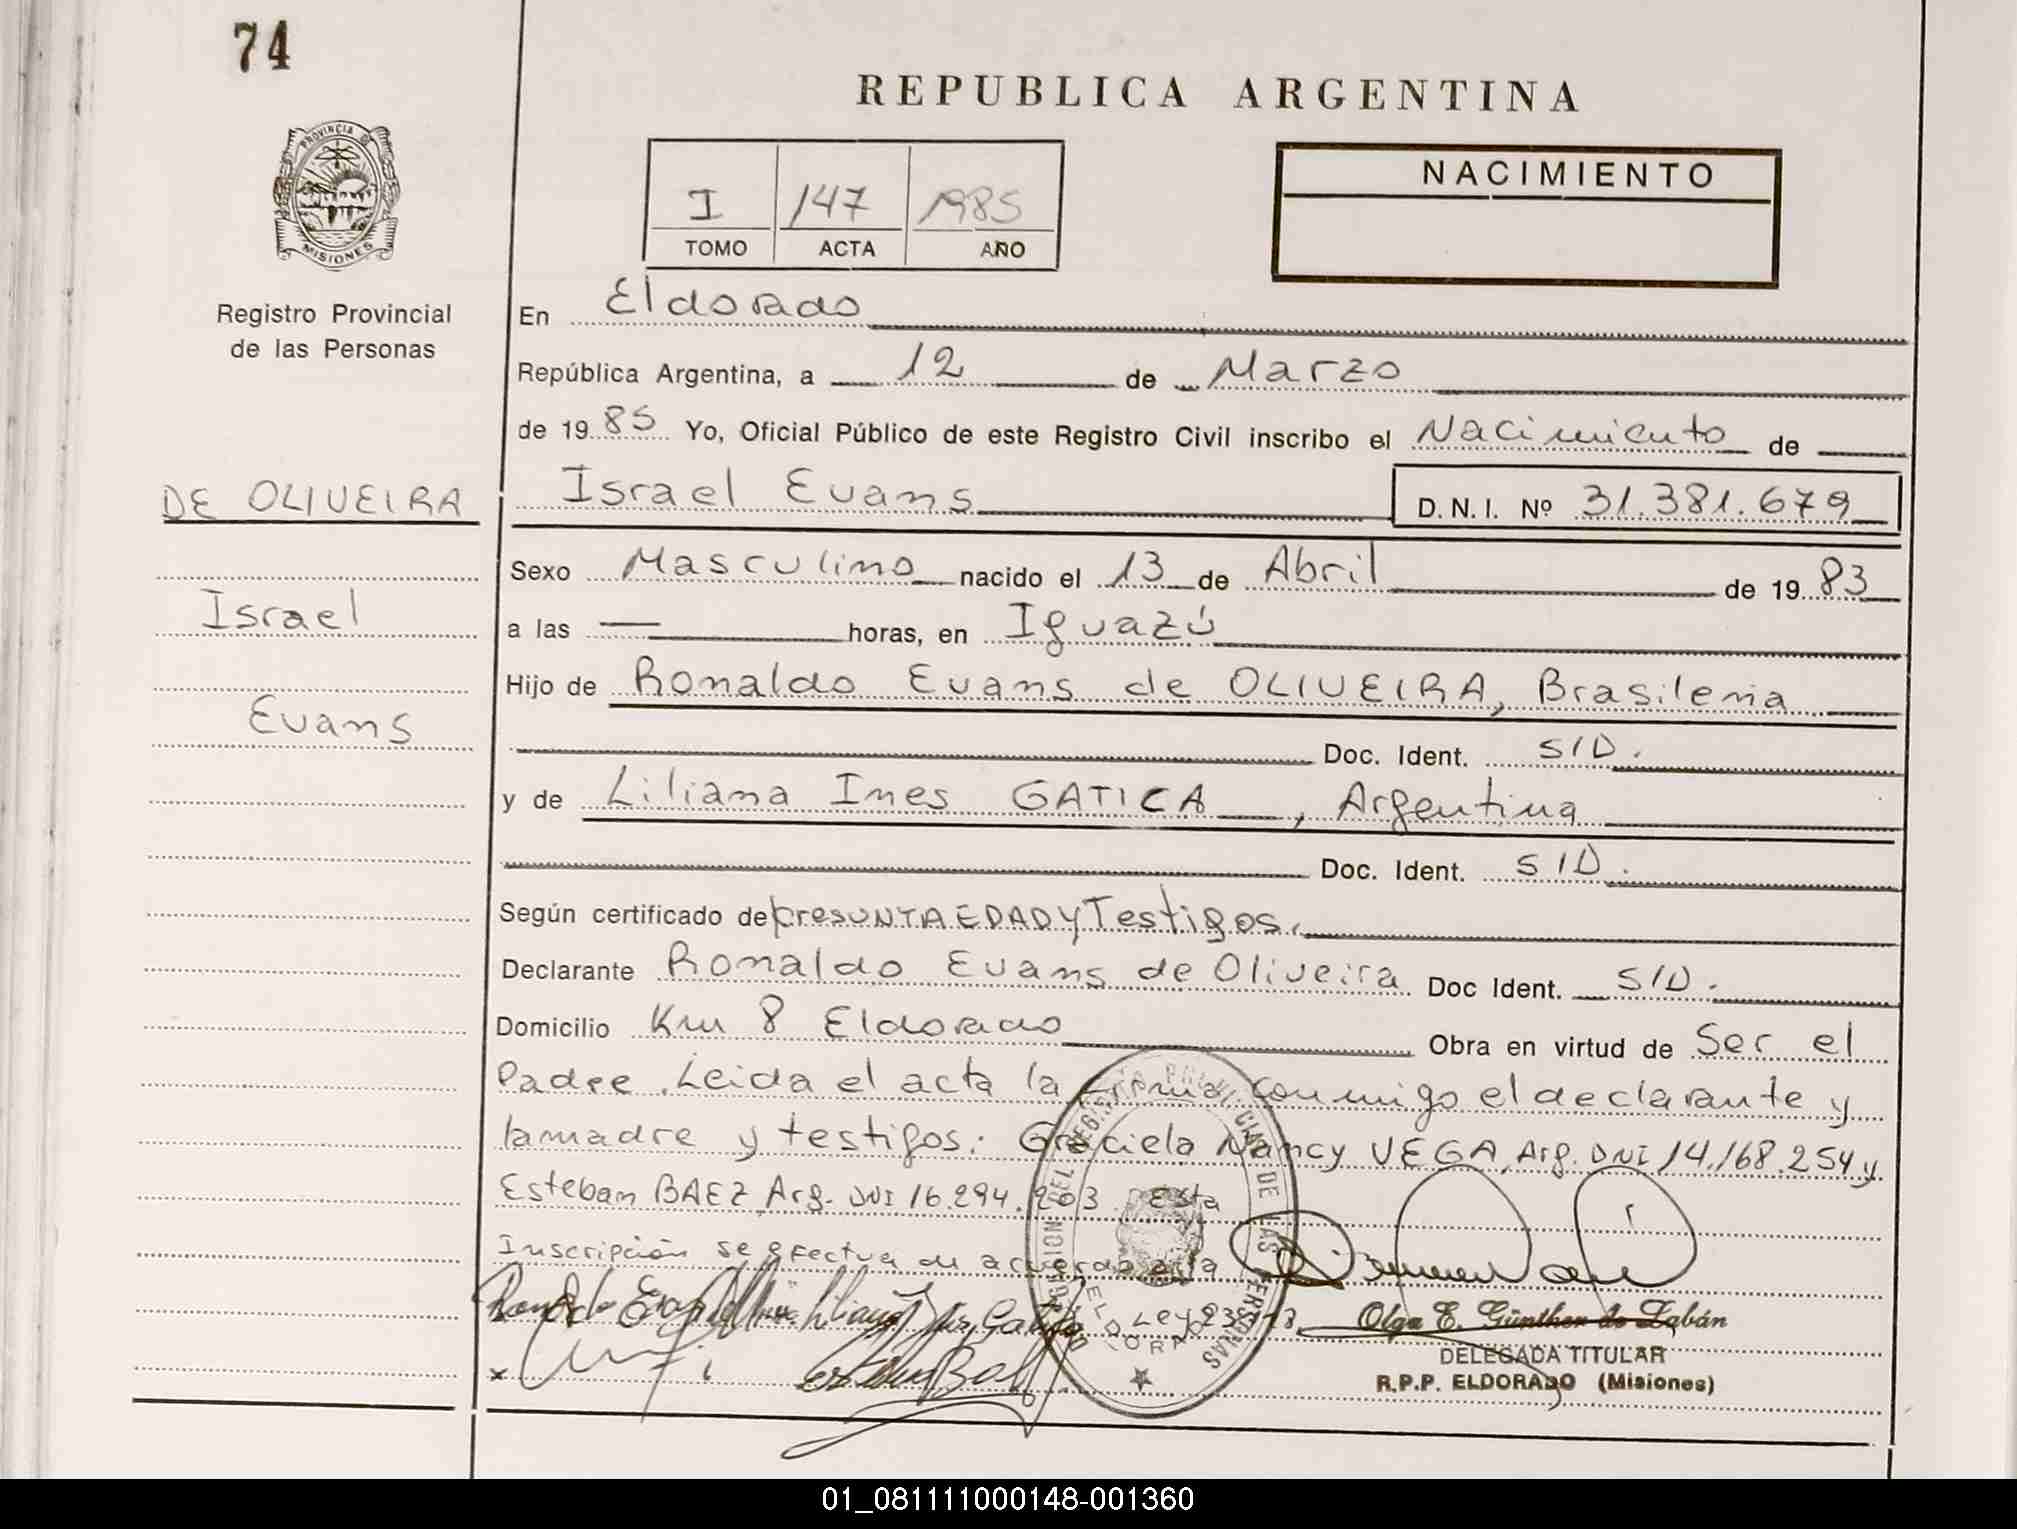 74
REPUBLICA ARGENTINA
PROVINCIA DE
MISIONES
Registro Provincial
de las Personas
I 147 1985
TOMO ACTA AÑO
NACIMIENTO
En Eldorado
República Argentina, a 12 de Marzo
de 19 85 Yo, Oficial Público de este Registro Civil inscribo el Nacimiento de
DE OLIVEIRA
Israel Evans D.N.I. Nº 31.381.679
Sexo Masculino nacido el 13 de Abril de 19 83
Israel
a las — horas, en Iguazú
Hijo de Ronaldo Evans de OLIVEIRA, Brasilena
Evans
Doc. Ident. S/D.
y de Liliana Ines GATICA, Argentina
Doc. Ident. S/D.
Según certificado de presUNTA EDAD y Testigos.
Declarante Ronaldo Evans de Oliveira Doc Ident. S/D.
Domicilio Km 8 Eldorado Obra en virtud de Ser el
Padre. Leida el acta la firma conmigo el declarante y
la madre y testigos: Graciela Nancy VEGA, Arg. DNI 14.168.254 y
Esteban BAEZ, Arg. DNI 16.294.263. Esta
Inscripción se efectua de acuerdo a la
Ley
Olga E. Günther de Labán
DELEGADA TITULAR
R.P.P. ELDORADO (Misiones)
01_081111000148-001360